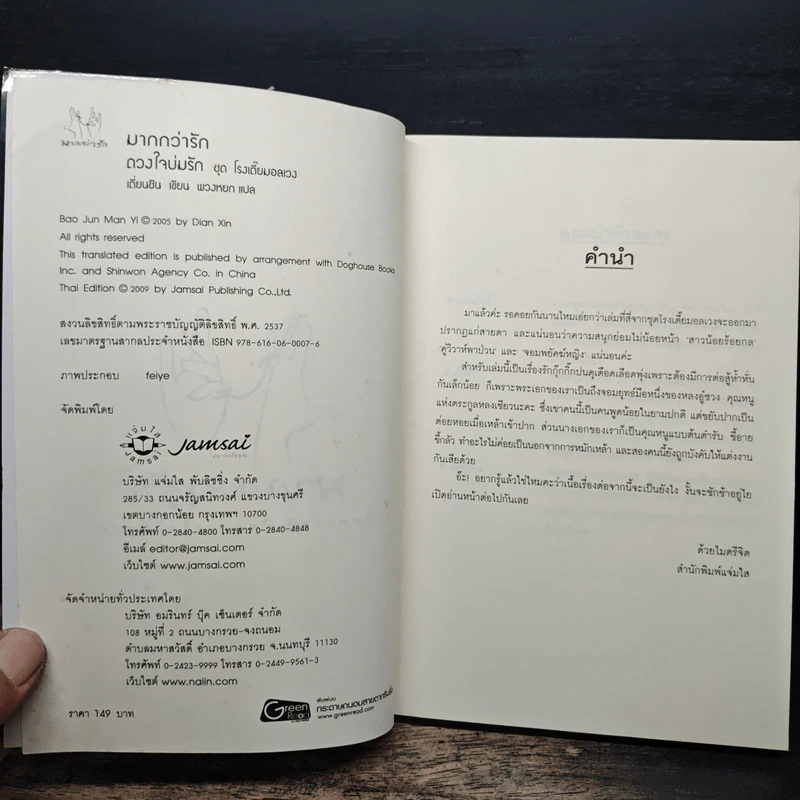 มากกว่ารัก
มากกว่ารัก
ดวงใจบ่มรัก ชุด โรงเตี๊ยมอลเวง
เตี่ยนซิน เขียน พวงหยก แปล
Bao Jun Man Yi © 2005 by Dian Xin
All rights reserved
This translated edition is published by arrangement with Doghouse Books
Inc. and Shinwon Agency Co. in China
Thai Edition © 2009 by Jamsai Publishing Co.,Ltd.
สงวนลิขสิทธิ์ตามพระราชบัญญัติลิขสิทธิ์ พ.ศ. 2537
เลขมาตรฐานสากลประจำหนังสือ ISBN 978-616-06-0007-6
ภาพประกอบ feiye
จัดพิมพ์โดย
แจ่มใส
Jamsai
Jamsai
บริษัท แจ่มใส พับลิชชิ่ง จำกัด
285/33 ถนนจรัญสนิทวงศ์ แขวงบางขุนศรี
เขตบางกอกน้อย กรุงเทพฯ 10700
โทรศัพท์ 0-2840-4800 โทรสาร 0-2840-4848
อีเมล์ editor@jamsai.com
เว็บไซต์ www.jamsai.com
จัดจำหน่ายทั่วประเทศโดย
บริษัท อมรินทร์ บุ๊ค เซ็นเตอร์ จำกัด
108 หมู่ที่ 2 ถนนบางกรวย-จงถนอม
ตำบลมหาสวัสดิ์ อำเภอบางกรวย จ.นนทบุรี 11130
โทรศัพท์ 0-2423-9999 โทรสาร 0-2449-9561-3
เว็บไซต์ www.naiin.com
ราคา 149 บาท
Green Read
พิมพ์บน
กระดาษถนอมสายตากรีนรี้ด
www.greenread.com
คำนำ
มาแล้วค่ะ รอคอยกันนานไหมเอ่ยกว่าเล่มที่สี่จากชุดโรงเตี๊ยมอลเวงจะออกมา
ปรากฏแก่สายตา และแน่นอนว่าความสนุกย่อมไม่น้อยหน้า 'สาวน้อยร้อยกล'
'คู่วิวาห์พาป่วน' และ 'จอมพยัคฆ์หญิง' แน่นอนค่ะ
สำหรับเล่มนี้เป็นเรื่องรักกุ๊กกิ๊กปนดุเดือดเลือดพุ่งเพราะต้องมีการต่อสู้ห้ำหั่น
กันเล็กน้อย ก็เพราะพระเอกของเราเป็นถึงจอมยุทธ์มือหนึ่งของหลงอู๋ซวง คุณหนู
แห่งตระกูลหลงเชียวนะคะ ซึ่งเขาคนนี้เป็นคนพูดน้อยในยามปกติ แต่ขยับปากเป็น
ต่อยหอยเมื่อเหล้าเข้าปาก ส่วนนางเอกของเราก็เป็นคุณหนูแบบต้นตำรับ ขี้อาย
ขี้กลัว ทำอะไรไม่ค่อยเป็นนอกจากการหมักเหล้า และสองคนนี้ยังถูกบังคับให้แต่งงาน
กันเสียด้วย
อ๊ะ! อยากรู้แล้วใช่ไหมคะว่าเนื้อเรื่องต่อจากนี้จะเป็นยังไง งั้นจะชักช้าอยู่ไย
เปิดอ่านหน้าต่อไปกันเลย
ด้วยไมตรีจิต
สำนักพิมพ์แจ่มใส